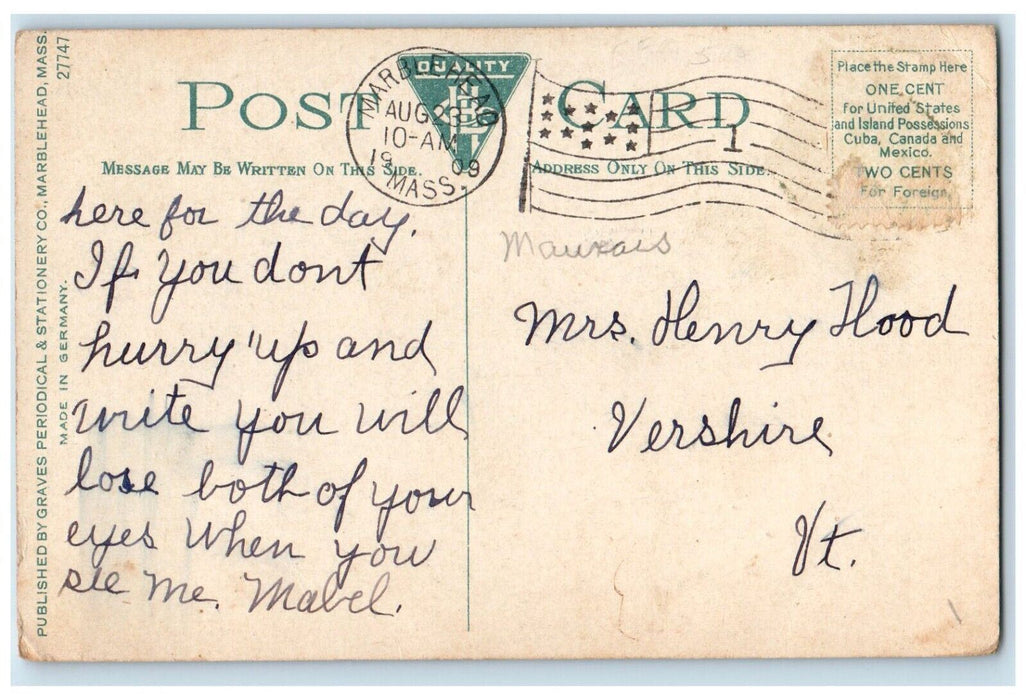 POST CARD
QUALITY
MARBLEHEAD
AUG 23
10-AM
1909
MASS.
1
MESSAGE MAY BE WRITTEN ON THIS SIDE.
ADDRESS ONLY ON THIS SIDE.
Place the Stamp Here
ONE CENT
for United States
and Island Possessions
Cuba, Canada and
Mexico.
TWO CENTS
For Foreign.
PUBLISHED BY GRAVES PERIODICAL & STATIONERY CO., MARBLEHEAD, MASS.
MADE IN GERMANY.
27747
here for the day.
If you dont
hurry up and
write you will
lose both of your
eyes when you
see me. Mabel.
Mrs. Henry Hood
Vershire
Vt.